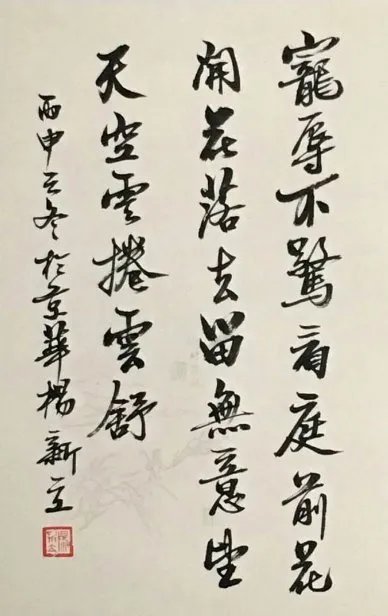 寵辱不驚看庭前花
開花落去留無意望
天空雲捲雲舒
丙申之冬於京華楊新立